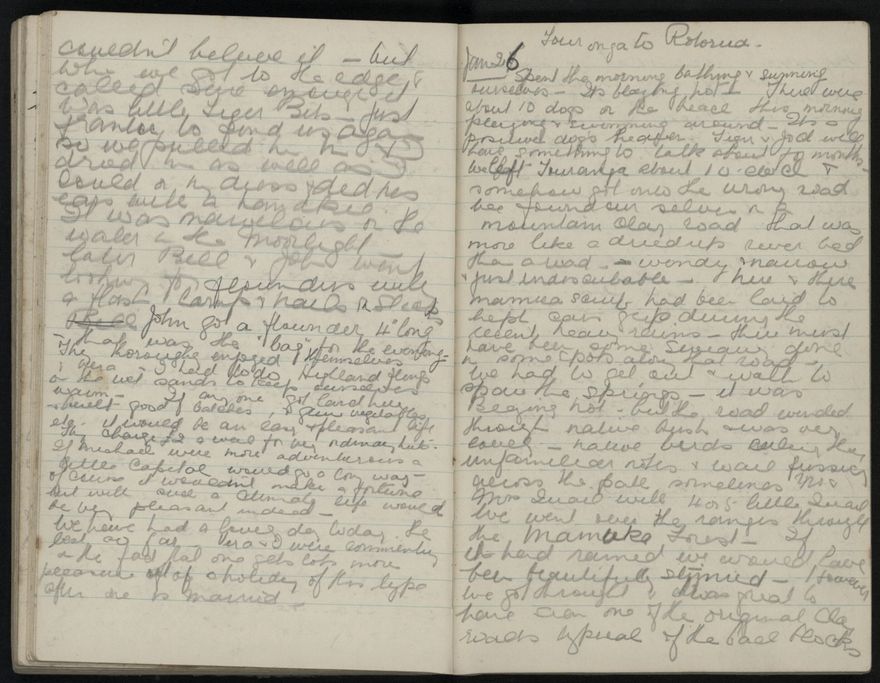 couldn't believe it – but
when we got to the edge &
called sure enough it
was little Tiger Bits – just
frantic to find us again
so we pulled him in &
dried him as well as I
could on my dress & dried his
ears with a handkie.
It was marvellous on the
water in the moonlight
later Bill & John went
looking for flounders with
a flash lamp & nails in sticks
John got a flounder 4" long
that was the "bag" for the evening –
They thoroughly enjoyed themselves
& Vera & I had to do Highland flings
on the wet sands to keep ourselves
warm – If any one got land here
& built good batches, & grew vegetables
etc. it would be an easy & pleasant life
They charge £2 a week for very ordinary huts –
If Michael were more adventurous a
little Capital would go a long way –
of course it wouldn't make a fortune
but with such a climate life would
be very pleasant indeed –
We have had a lovely day today. The
best so far Vera & I were commenting
on the fact that one gets lots more
pleasure out of a holiday of this type
after one is married –
Tauranga to Rotorua.
Jan 26
Spent the morning bathing & sunning
ourselves – Its blazing hot – There were
about 10 dogs on the beach this morning
playing & swimming around – Its a
positive dogs heaven. Tiger & Jod will
have something to talk about for months –
We left Tauranga about 10 &
somehow got onto the wrong road
& found ourselves on a
mountain clay road that was
more like a dried up river bed
than a road – windy & narrow
& just indescribable – Here & there
manuka scrub had been laid to
help cars grip during the
recent heavy rains – there must
have been some swearing done
in some spots along that road –
We had to get out & walk to
spare the springs – it was
Blazing hot – but the road winded
through native bush & was very
– native birds calling their
unfamiliar notes & fussing
across the path sometimes Mr &
Mrs Quail with 4 or 5 little Quail
We went over the ranges through
the Mamuka Forest – If
it had rained we would have
been beautifully stymied – However
we got through & it was great to
have seen one of the original Clay
roads typical of the back blocks